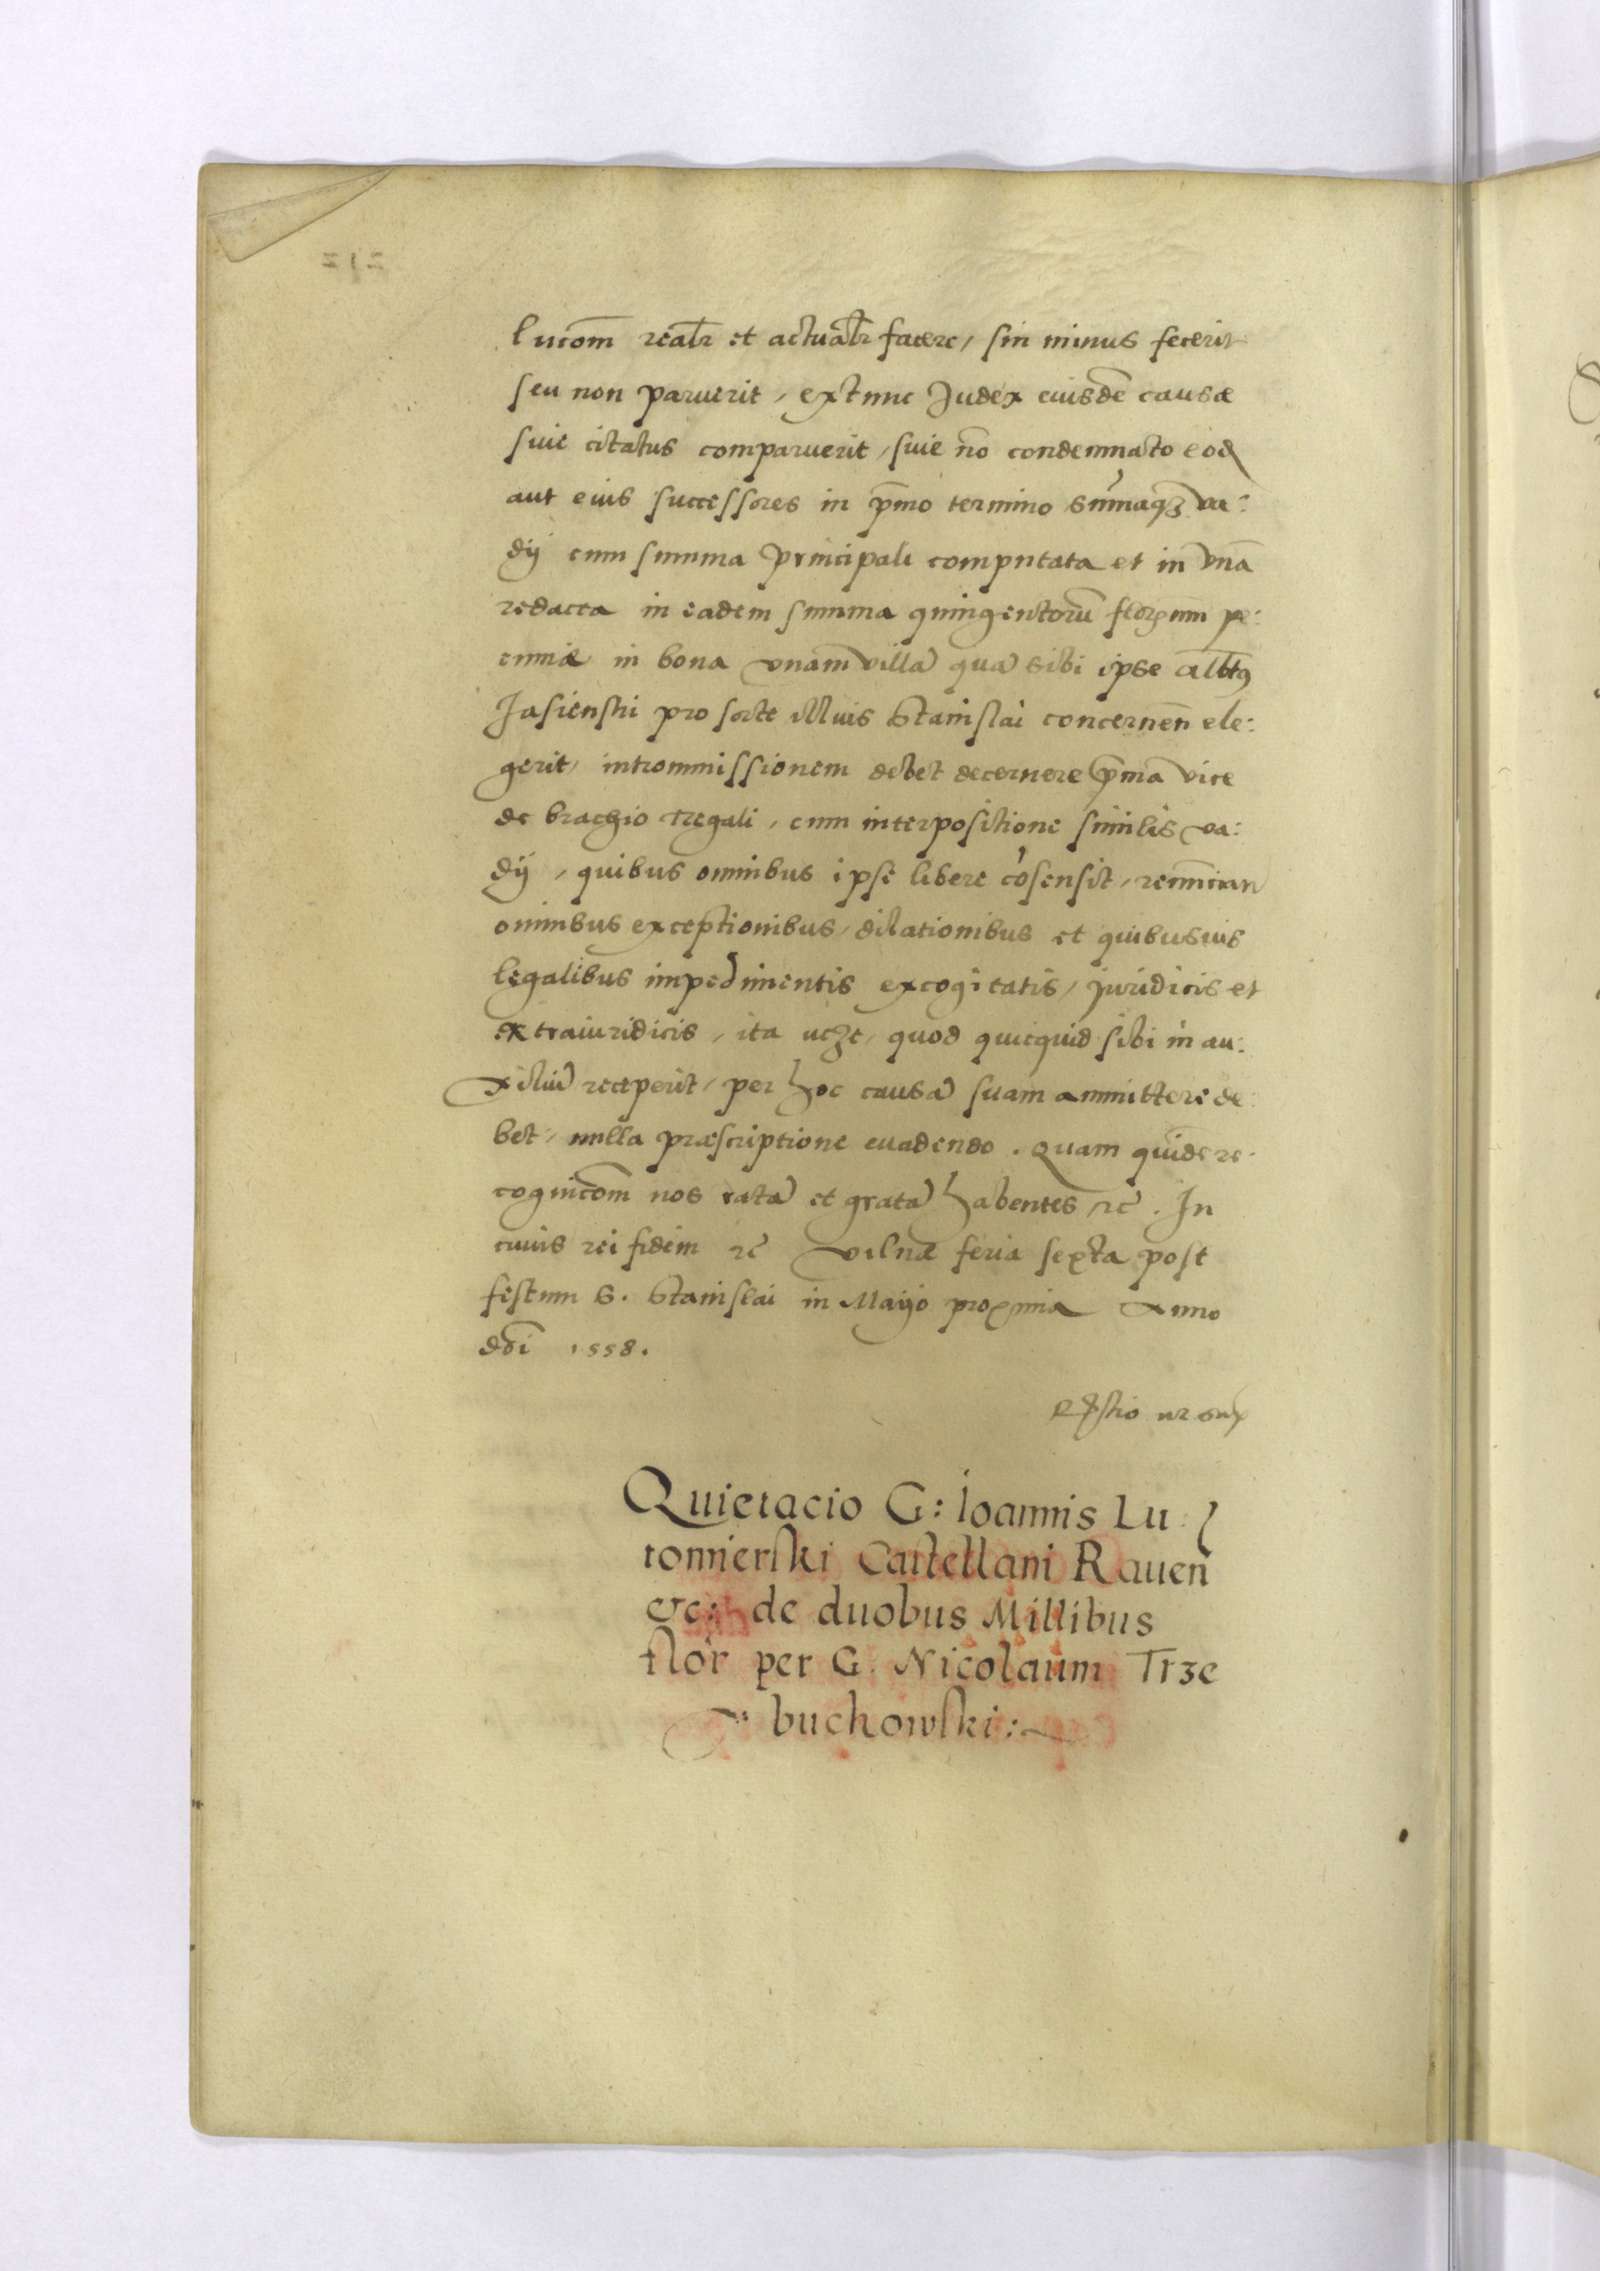 lucom̄ realr̄ et actualr̄ facere, sin minus fecerit
seu non paruerit, extunc Judex eiusdē causæ
siue citatus comparuerit, siue nō condemnato eod
aut eius successores in p̄mo termino sum̄aqꝫ va:
dij cum summa principali computata et in vnā
redacta in eadem summa quingentorū florenum pe:
cuniæ in bona vnam villā quā sibi ipse Albtꝰ
Jasienski pro sorte illius Stanislai concernen̄ ele:
gerit, intrommissionem debet decernere p̄ma vice
de brachio Regali, cum interpositione similis va:
dij, quibus omnibus ipse libere cōsensit, renuncian
omnibus exceptionibus, dilationibus et quibusuis
legalibus impedimentis excogitatis, juridicis et
extraiuridicis, ita vt, quod quicquid sibi in au:
xiliū receperit, per hoc causā suam ammittere de:
bet, nulla præscriptione euadendo. Quam quidē re:
cognicom̄ nos ratā et gratā habentes, etc̄. In
cuius rei fidem etc̄ Vilnæ feria sexta post
festum S. Stanislai in Mayo proxima Anno
dn̄i 1558.
ut sup
Quietacio G: Ioannis Lu:
tomierski Castellani Rauen̄
etc: de duobus Millibus
flor per G. Nicolaum Trze
buchowski:
212